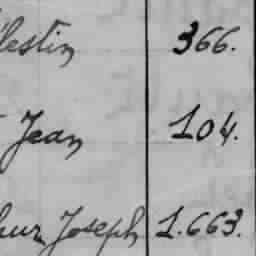 lestin 366.
Jean 104.
eur Joseph 1.663.